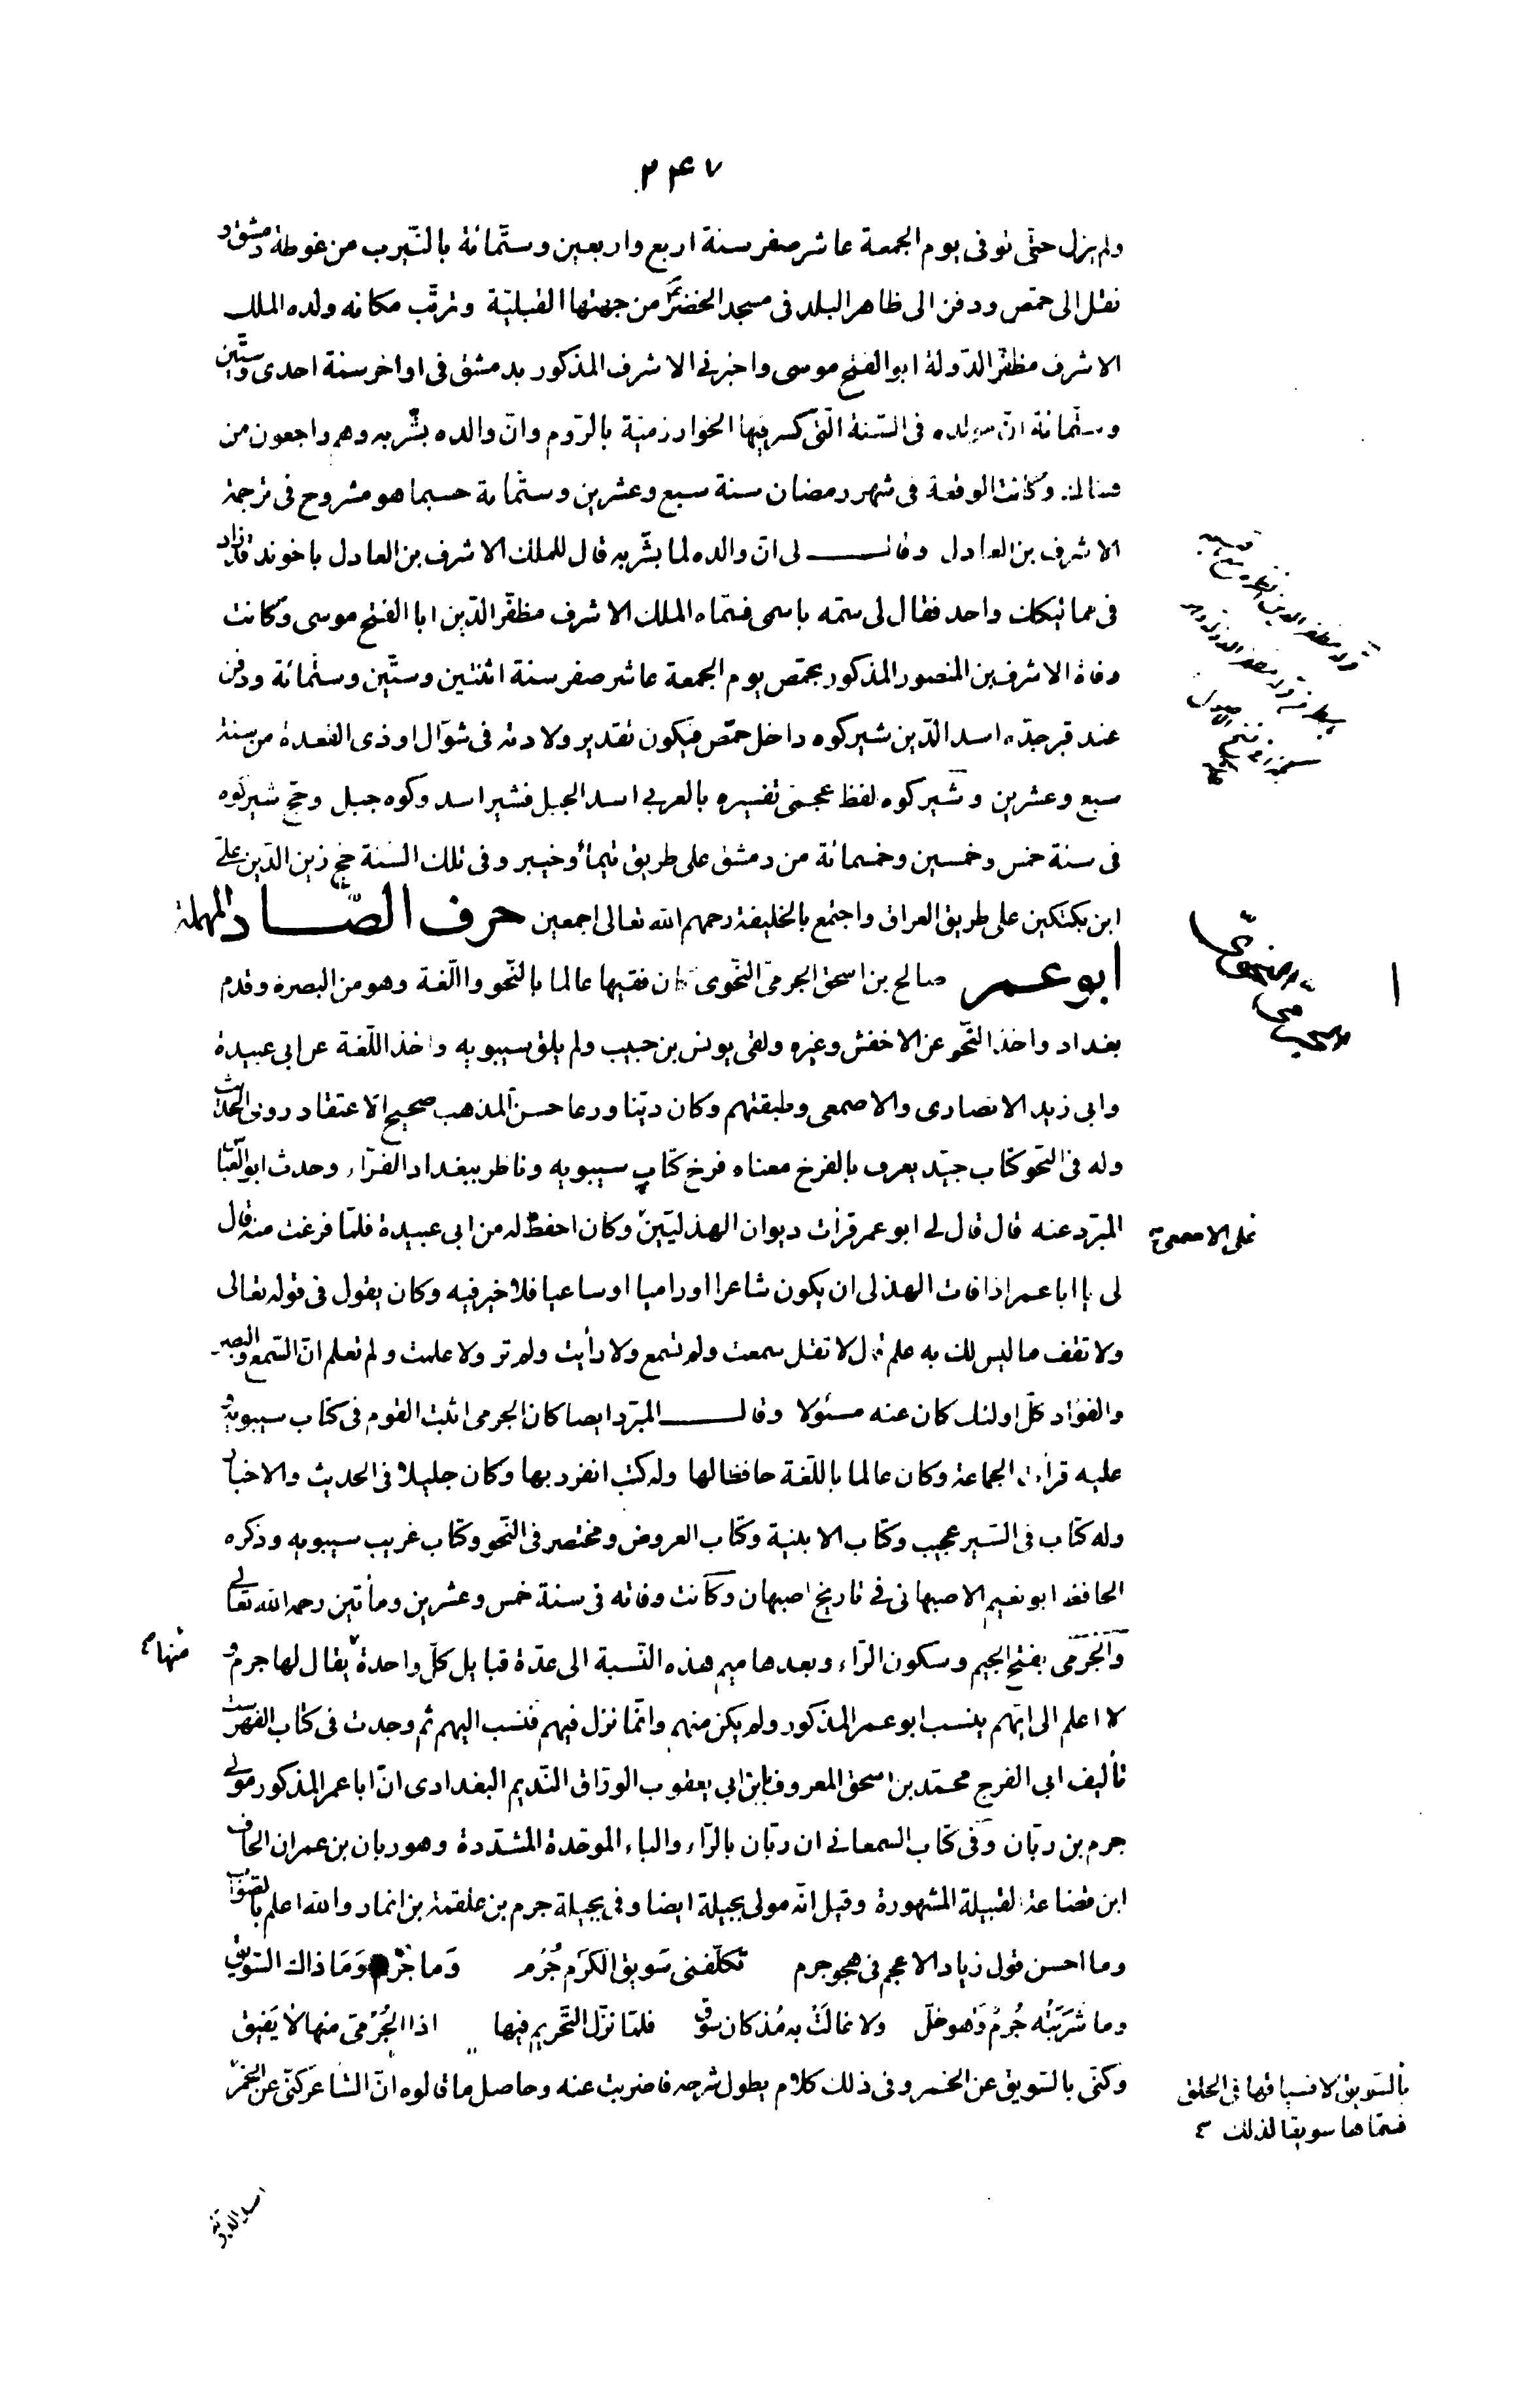 ۲۴۷
ولم يزل حتّى توفى يوم الجمعة عاشر صفر سنة اربع واربعين وستّمائة بالنّيرب من غوطة دمشق و
نقل الى حمص ودفن الى ظاهر البلد فى مسجد الخضر من جهتها القبليّة وترتّب مكانه ولده الملك
الاشرف مظفّر الدّولة ابو الفتح موسى واخبرنى الاشرف المذكور بدمشق فى اواخر سنة احدى وستّين
وستّمائة انّ مولده فى السّنة الّتى كسر فيها الخوارزميّة بالرّوم وانّ والده بشّر به وهم راجعون من
هنالك وكانت الوقعة فى شهر رمضان سنة سبع وعشرين وستّماية حسبما هو مشروح فى ترجمة
الاشرف بن العادل وقال لى انّ والده لما بشّر به قال للملك الاشرف بن العادل ياخوند قد زاد
فى مماليكك واحد فقال لى سمّه باسمى فسمّاه الملك الاشرف مظفّر الدّين ابا الفتح موسى وكانت
وفاة الاشرف بن المنصور المذكور بحمص يوم الجمعة عاشر صفر سنة اثنتين وستّين وستّمائة ودفن
عند قبر جدّه اسد الدّين شيركوه داخل حمّص فيكون تقدير ولادته فى شوّال او ذى القعدة من سنة
سبع وعشرين وشيركوه لفظ عجمىّ تفسيره بالعربى اسد الجبل فشير اسد وكوه جبل وحجّ شيركوه
فى سنة خمس وخمسين وخمسمائة من دمشق على طريق تيماء وخيبر وفى تلك السّنة حجّ زين الدّين علىّ
ابن بكتكين على طريق العراق واجتمع بالخليفة رحمهم الله تعالى اجمعين حرف الصّاد المهملة
ابو عمر صالح بن اسحق الجرمىّ النّحوى كان فقيها عالما بالنّحو واللّغة وهو من البصرة وقدم
بغداد واخذ النّحو عن الاخفش وغيره ولقى يونس بن حبيب ولم يلق سيبويه واخذ اللّغة عن ابى عبيدة
وابى زيد الانصارى والاصمعى وطبقتهم وكان ديّنا ورعا حسن المذهب صحيح الاعتقاد روى الحديث
وله فى النّحو كتاب جيّد يعرف بالفرخ معناه فرخ كتاب سيبويه وناظر ببغداد الفرّاء وحدث ابو العبّاس
المبرّد عنه قال قال لى ابو عمر قرأت ديوان الهذليّين وكان احفظ له من ابى عبيدة فلمّا فرغت منه قال
على الاصمعى
لى يا ابا عمر اذا فات الهذلى ان يكون شاعرا او راميا او ساعيا فلا خير فيه وكان يقول فى قوله تعالى
ولا تقف ما ليس لك به علم قال لا تقل سمعت ولم تسمع ولا رأيت ولم تر ولا علمت ولم تعلم انّ السّمع والبصر
والفؤاد كلّ اولئك كان عنه مسئولا وقال المبرّد ايضا كان الجرمى اثبت القوم فى كتاب سيبويه و
عليه قرأت الجماعة وكان عالما باللّغة حافظا لها وله كتب انفرد بها وكان جليلا فى الحديث والاخبار
وله كتاب فى السّير عجيب وكتاب الابنية وكتاب العروض ومختصر فى النّحو وكتاب غريب سيبويه وذكره
الحافظ ابو نعيم الاصبهانى فى تاريخ اصبهان وكانت وفاته فى سنة خمس وعشرين ومأتين رحمه الله تعالى
والجرمى بفتح الجيم وسكون الرّاء وبعدها ميم هذه النّسبة الى عدّة قبايل كلّ واحدة يقال لها جرم و
منها
لا اعلم الى ايّهم ينسب ابو عمر المذكور ولم يكن منهم وانّما نزل فيهم فنسب اليهم ثم وجدت فى كتاب الفهرست
تأليف ابى الفرج محمّد بن اسحق المعروف بابن ابى يعقوب الورّاق النّديم البغدادى انّ ابا عمر المذكور مولى
جرم بن ربّان وفى كتاب السمعانى ان ربّان بالرّاء والباء الموحّدة المشدّدة وهو ربان بن عمران الحاف
ابن قضاعة القبيلة المشهورة وقيل انّه مولى بجيلة ايضا وفى بجيلة جرم بن علقمة بن انمار والله اعلم بالصّواب
وما احسن قول زياد الاعجم فى هجو جرم تكلّفنى سَويق الكَرم جُرم وَما جُرم وَمَا ذاك السّويق
وما شَرَبَتْه جُرمُ وَهو حَلّ ولا غالَتْ به مُذ كان سوق فلمّا نزّل التّحريم فيها اذا الجُرْمىّ منها لا يَفيق
وكنّى بالسّويق عن الخمر وفى ذلك كلام يطول شرحه فاضربت عنه وحاصل ما قالوه انّ الشّاعر كنّى عن الخمر
بالسّويق لانسياقها فى الحلق
فسمّاها سويقا لذلك